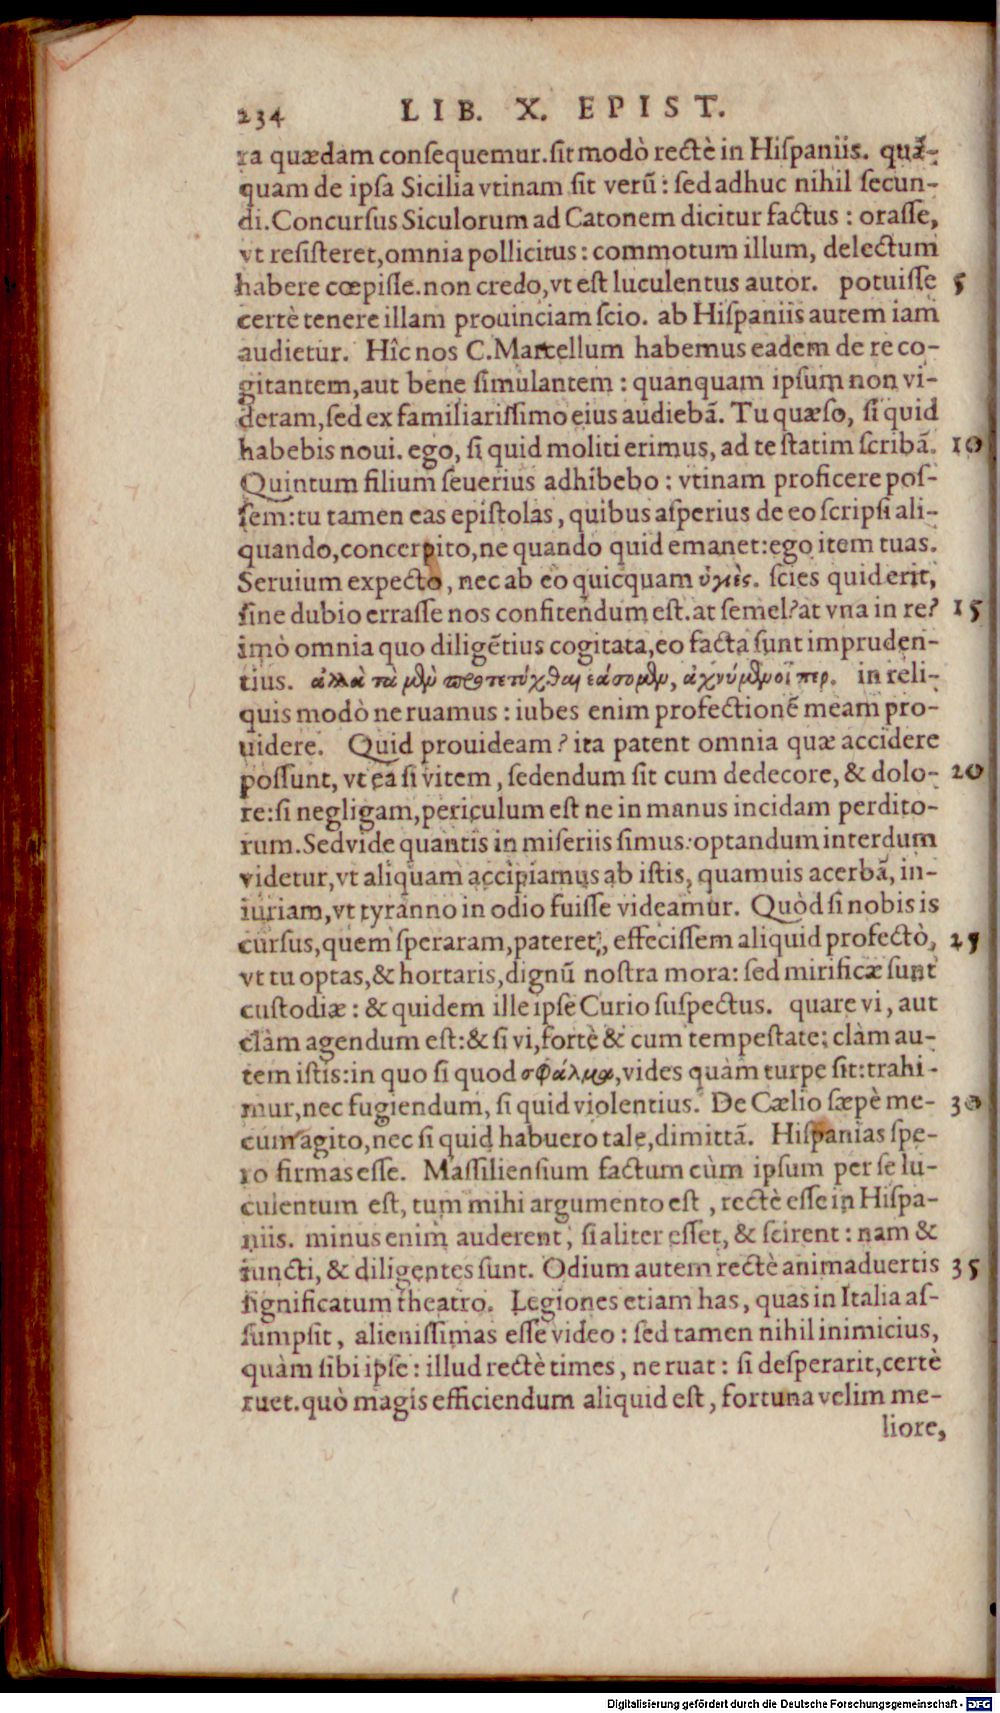 234 LIB. X. EPIST.
ra quædam consequemur. sit modò rectè in Hiſpaniis. quã-
quam de ipſa Sicilia vtinam ſit verũ: ſed adhuc nihil ſecun-
di. Concurſus Siculorum ad Catonem dicitur factus: oraſſe,
vt reſiſteret, omnia pollicitus: commotum illum, delectum
habere cœpiſſe. non credo, vt eſt luculentus autor. potuiſſe 5
certè tenere illam prouinciam ſcio. ab Hiſpaniis autem iam
audietur. Hîc nos C. Marcellum habemus eadem de re co-
gitantem, aut bene ſimulantem: quanquam ipſum non vi-
deram, ſed ex familiariſſimo eius audiebã. Tu quæſo, ſi quid
habebis noui. ego, ſi quid moliti erimus, ad te ſtatim ſcribã. 10
Quintum filium ſeuerius adhibebo: vtinam proficere poſ-
ſem: tu tamen eas epiſtolas, quibus aſperius de eo ſcripſi ali-
quando, concerpito, ne quando quid emanet: ego item tuas.
Seruium expecto, nec ab eo quicquam ὑγιὲς. ſcies quid erit,
ſine dubio erraſſe nos confitendum eſt. at ſemel? at vna in re? 15
imò omnia quo diligẽtius cogitata, eo facta ſunt impruden-
tius. ἀλλὰ τὰ μὲν προτετύχθαι ἐάσομεν, ἀχνύμενοί περ. in reli-
quis modò ne ruamus: iubes enim profectionẽ meam pro-
uidere. Quid prouideam? ita patent omnia quæ accidere
poſſunt, vt ea ſi vitem, ſedendum ſit cum dedecore, & dolo- 20
re: ſi negligam, periculum eſt ne in manus incidam perdito-
rum. Sed vide quantis in miſeriis ſimus: optandum interdum
videtur, vt aliquam accipiamus ab iſtis, quamuis acerbã, in-
iuriam, vt tyranno in odio fuiſſe videamur. Quòd ſi nobis is
curſus, quem ſperaram, pateret, effeciſſem aliquid profectò, 25
vt tu optas, & hortaris, dignũ noſtra mora: ſed mirificæ ſunt
cuſtodiæ: & quidem ille ipſe Curio ſuſpectus. quare vi, aut
clàm agendum eſt: & ſi vi, fortè & cum tempeſtate; clàm au-
tem iſtis: in quo ſi quod σφάλμα, vides quàm turpe ſit: trahi-
mur, nec fugiendum, ſi quid violentius. De Cælio ſæpè me- 30
cum agito, nec ſi quid habuero tale, dimittã. Hiſpanias ſpe-
ro firmas eſſe. Maſſilienſium factum cùm ipſum per ſe lu-
culentum eſt, tum mihi argumento eſt, rectè eſſe in Hiſpa-
niis. minus enim auderent, ſi aliter eſſet, & ſcirent: nam &
iuncti, & diligentes ſunt. Odium autem rectè animaduertis 35
ſignificatum theatro. Legiones etiam has, quas in Italia aſ-
ſumpſit, alieniſſimas eſſe video: ſed tamen nihil inimicius,
quàm ſibi ipſe: illud rectè times, ne ruat: ſi deſperarit, certè
ruet. quò magis efficiendum aliquid eſt, fortuna velim me-
liore,
Digitalisierung gefördert durch die Deutsche Forschungsgemeinschaft - DFG